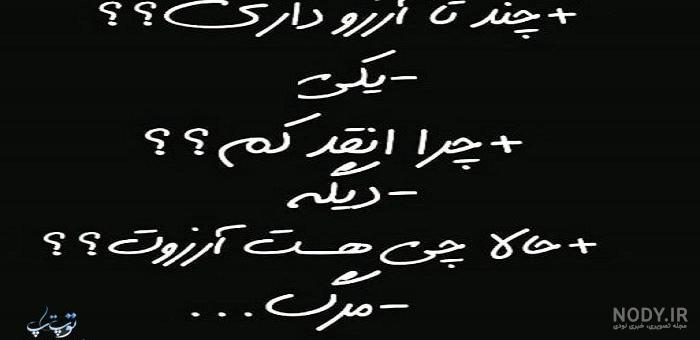 + چند تا آرزو داری؟؟
- یکی
+ چرا انقد کم؟؟
- دیگه
+ حالا چی هست آرزوت؟؟
- مرگ...
توپ تاپ
NODY.IR
مجله تصویری، خبری نودی